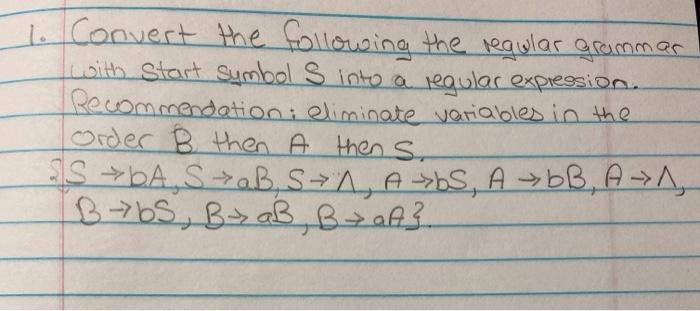 1. Convert the following the regular grammar
with start symbol S into a regular expression.
Recommendation: eliminate variables in the
order B then A then S.
{S →bA, S→aB, S→Λ, A→bS, A →bB, A→Λ,
B→bS, B→aB, B→aA}.